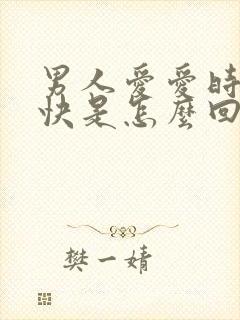 男人愛愛時
快是怎麼回
樊一婧